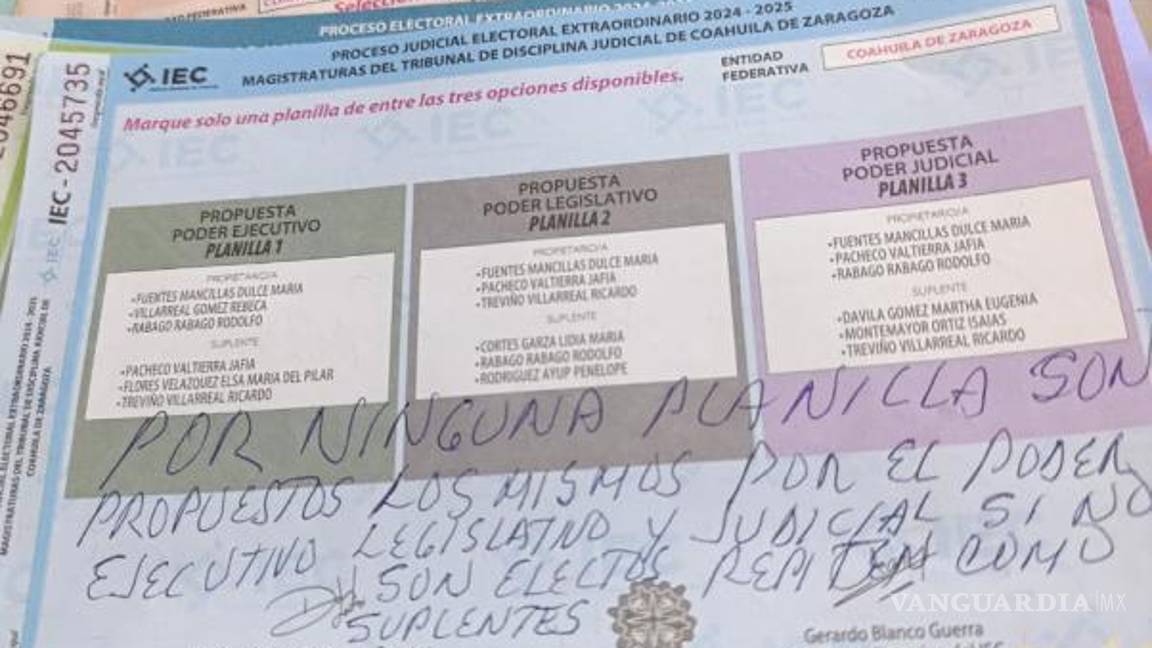 PROCESO ELECTORAL EXTRAORDINARIO
PROCESO JUDICIAL ELECTORAL EXTRAORDINARIO 2024 - 2025
MAGISTRATURAS DEL TRIBUNAL DE DISCIPLINA JUDICIAL DE COAHUILA DE ZARAGOZA
IEC
ENTIDAD
FEDERATIVA
COAHUILA DE ZARAGOZA
Marque solo una planilla de entre las tres opciones disponibles.
IEC-2045735
PROPUESTA
PODER EJECUTIVO
PLANILLA 1
PROPIETARIO/A
•FUENTES MANCILLAS DULCE MARIA
•VILLARREAL GOMEZ REBECA
•RABAGO RABAGO RODOLFO
SUPLENTE
•PACHECO VALTIERRA JAFIA
•FLORES VELAZQUEZ ELSA MARIA DEL PILAR
•TREVIÑO VILLARREAL RICARDO
PROPUESTA
PODER LEGISLATIVO
PLANILLA 2
PROPIETARIO/A
•FUENTES MANCILLAS DULCE MARIA
•PACHECO VALTIERRA JAFIA
•TREVIÑO VILLARREAL RICARDO
SUPLENTE
•CORTES GARZA LIDIA MARIA
•RABAGO RABAGO RODOLFO
•RODRIGUEZ AYUP PENELOPE
PROPUESTA
PODER JUDICIAL
PLANILLA 3
PROPIETARIO/A
•FUENTES MANCILLAS DULCE MARIA
•PACHECO VALTIERRA JAFIA
•RABAGO RABAGO RODOLFO
SUPLENTE
•DAVILA GOMEZ MARTHA EUGENIA
•MONTEMAYOR ORTIZ ISAIAS
•TREVIÑO VILLARREAL RICARDO
POR NINGUNA PLANILLA SON
PROPUESTOS LOS MISMOS POR EL PODER
EJECUTIVO LEGISLATIVO Y JUDICIAL SI NO
SON ELECTOS REPITEN COMO
SUPLENTES
VANGUARDIA|MX
Gerardo Blanco Guerra